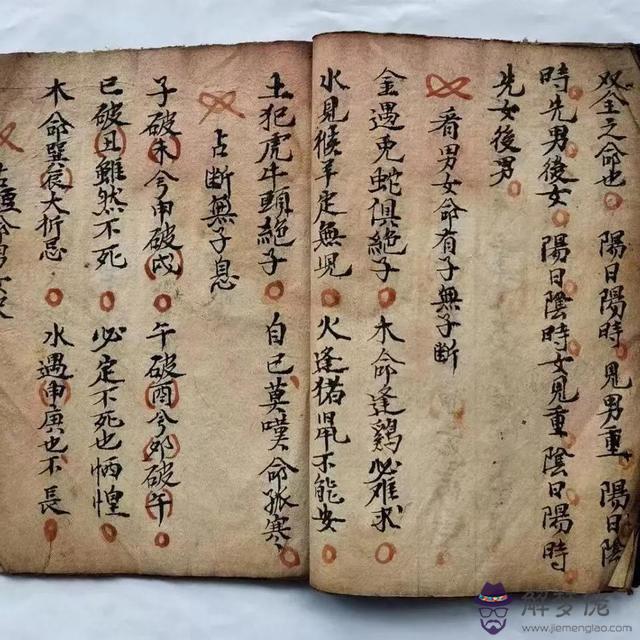 双全之命也 陽日陽時 見男重 陽日陰
時先男後女 陽日陰時女見重 陰日陽時
先女後男
看男女命有子無子斷
金遇兎蛇俱絶子 木命逢鷄必难求
水見猴羊定無児 火逢猪鼠不能安
土犯虎牛頭絶子 自已莫嘆命孤寒
占断無子息
子破未兮申破戍 午破酉兮卯破午
已破丑雖然不死 必定不死也恓惶
木命墾哀大折忌 水遇申庚也不長
解梦佬
www.jiemenglao.com